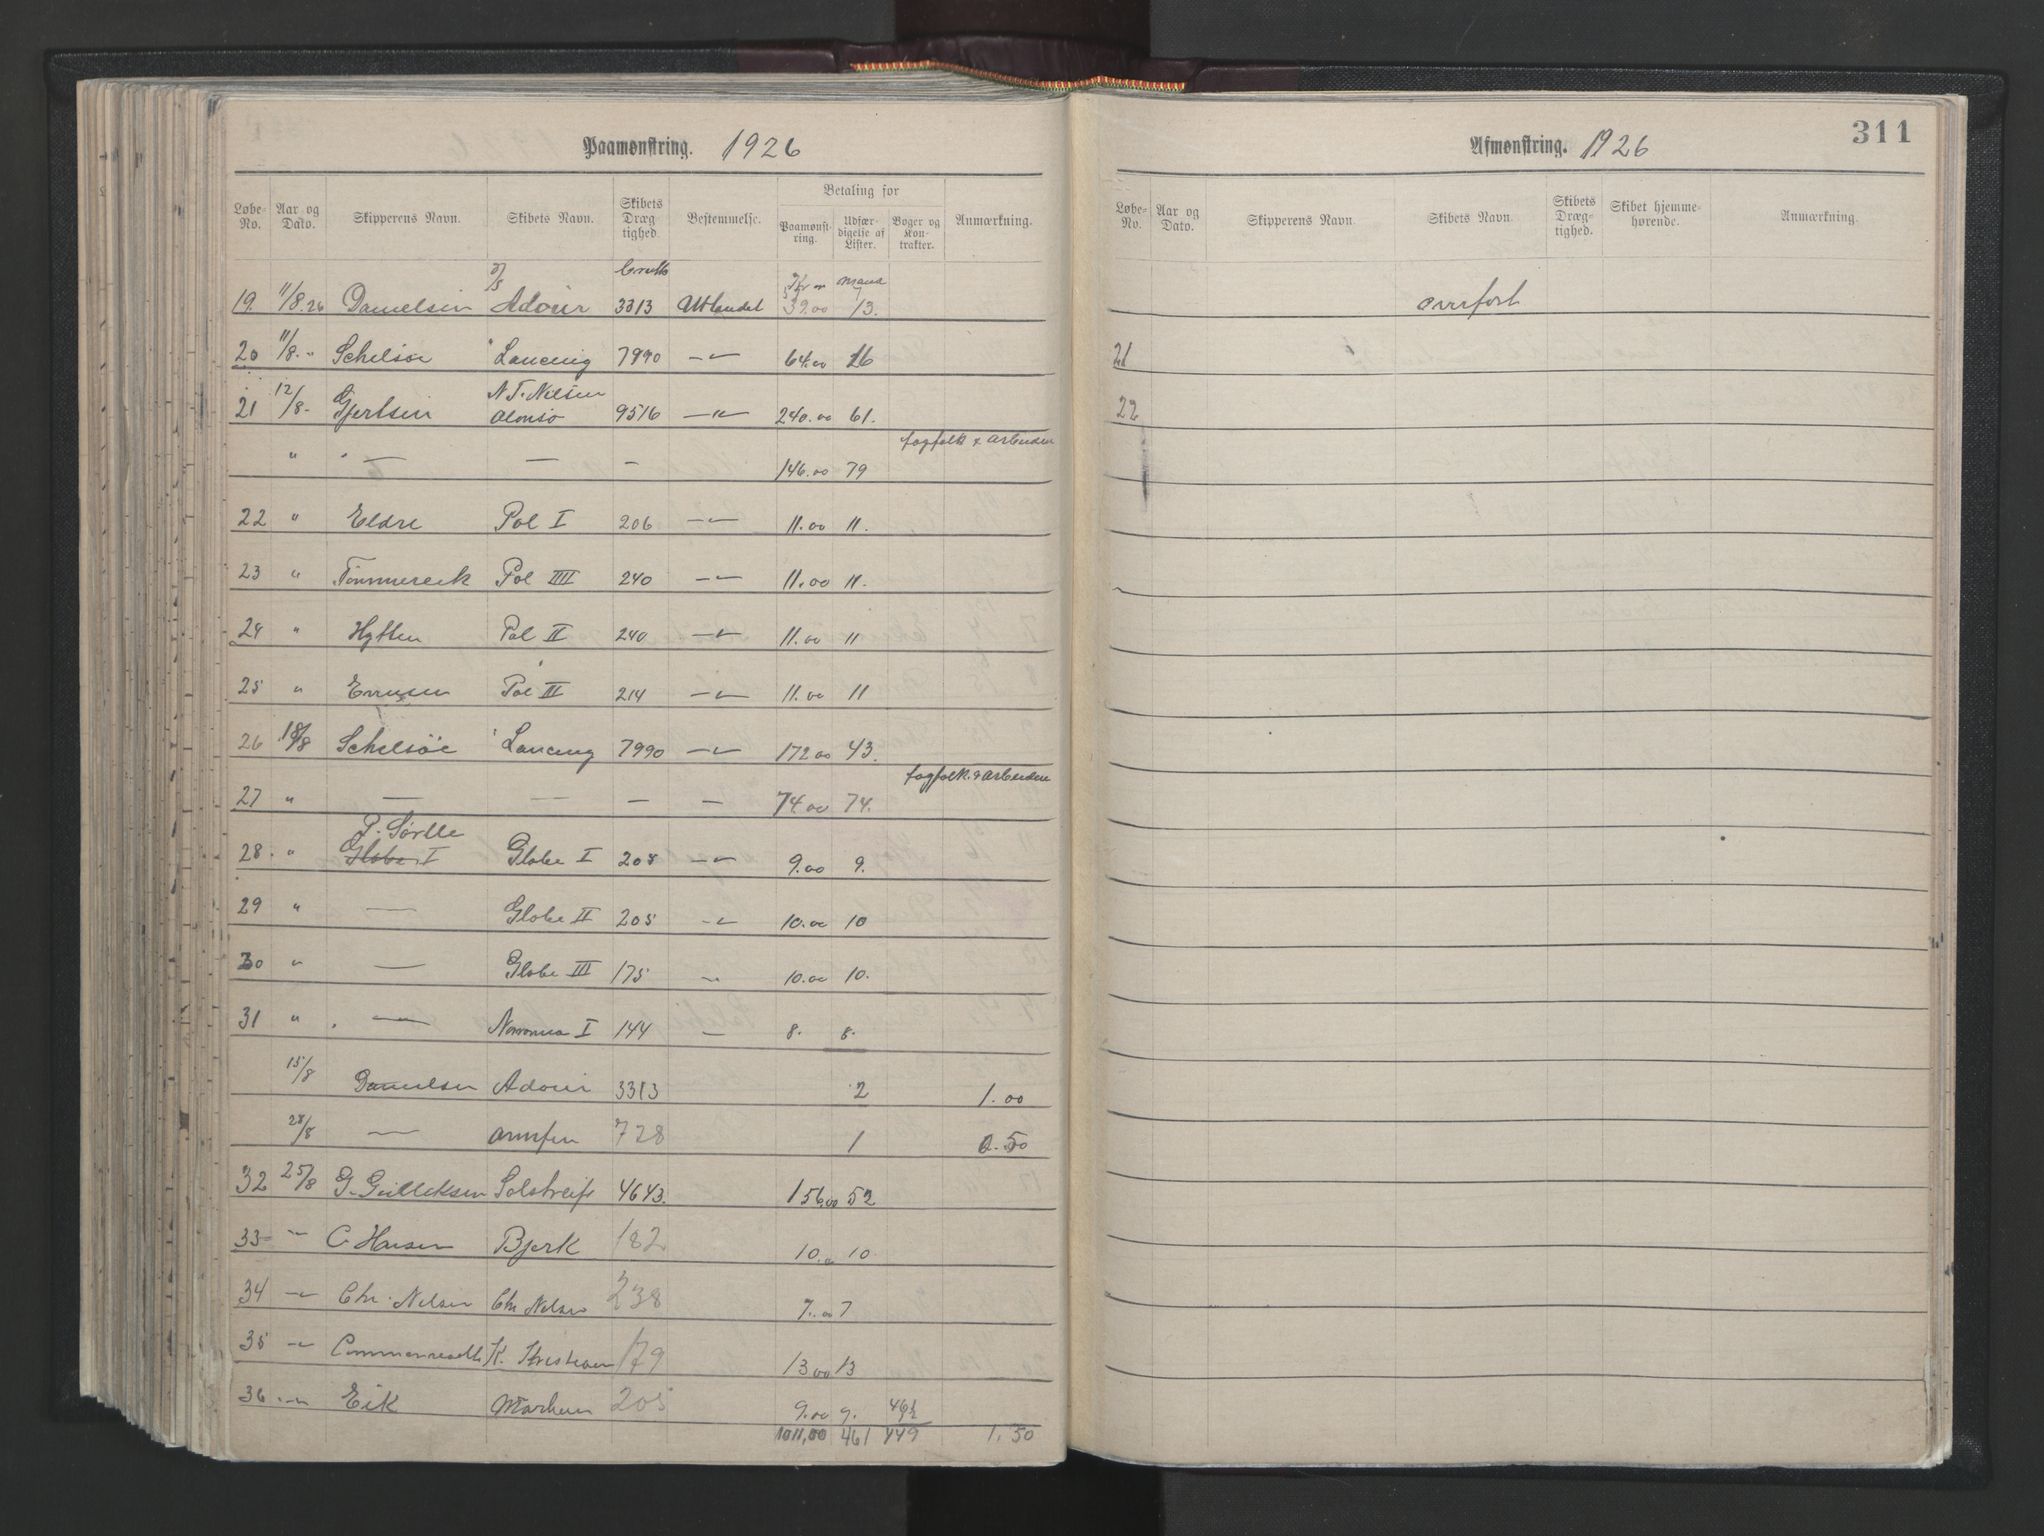 Paamønstring. 1926
Løbe-No. Aar og Dato. Skipperens Navn. Skibets Navn. Skibets Dræg-tighed. Bestemmelse. Betaling for Paamønst-ring. Udfær-digelse af Lister. Bøger og Kon-trakter. Anmærkning.
Brutto Kr mand
19. 11/8.26 Danielsen D/S Adour 3313 Utlandet 39.00 13.
20 11/8. " Schelsøe " Lancing 7990 —"— 64.00 16
21 12/8- Gjertsen N.T. Nielsen Alonso 9516 —"— 240.00 61.
fagfolk & arbeidere
" " — — — 146.00 79
22 " Eldre Pol I 206 —"— 11.00 11.
23 " Tømmereek Pol IIII 240 —"— 11.00 11.
24 " Hytten Pol II 240 —"— 11.00 11
25 " Pol III 214 —"— 11.00 11
26 18/8 Schelsøe " Lancing 7990 —"— 172.00 43.
fagfolk & arbeidere
27 " — — — — 74.00 74.
P. Sørlle
28. " Globe I Globe I 208 —"— 9.00 9.
29 " — Globe II 205 —"— 10.00 10
30 " — Globe III 175 " 10.00 10.
31 " — Norrøna I 144 — 8. 8.
15/8 Danielsen Adour 3313 2 1.00
28/8 — 728 1 0.50
32 25/8 G. Gulliksen Solstreif 4643. 156.00 52
33 —"— C. Hansen Bjerk 182 10.00 10
34 —"— Chr. Nelsen Chr Nelsen 238 7.00 7
35 —"— K. Kristian 179 13.00 13
36 —"— Eik Marhen 205 9.00 9.
1011,00 461 449 1.50
Afmønstring. 1926
311
Løbe-No. Aar og Dato. Skipperens Navn. Skibets Navn. Skibets Dræg-tighed. Skibet hjemme-hørende. Anmærkning.
overført
21
22